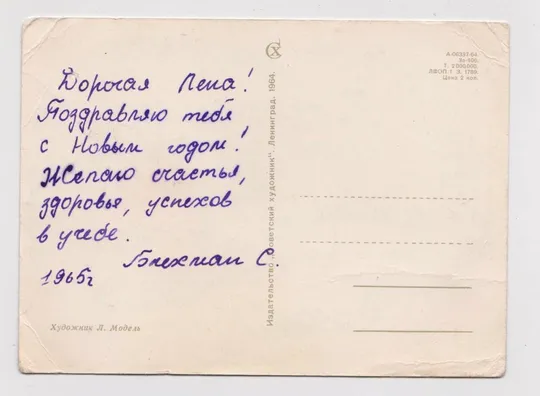 Дорогая Лена!
Поздравляю тебя
с Новым годом!
Желаю счастья,
здоровья, успехов
в учебе.
Блехман С.
1965г
Художник Л. Модель
Издательство „Советский художник". Ленинград. 1964.
А-00337-64.
Т. 2 000 000.
ЛФОП-1 З. 1789
Цена 3 коп.